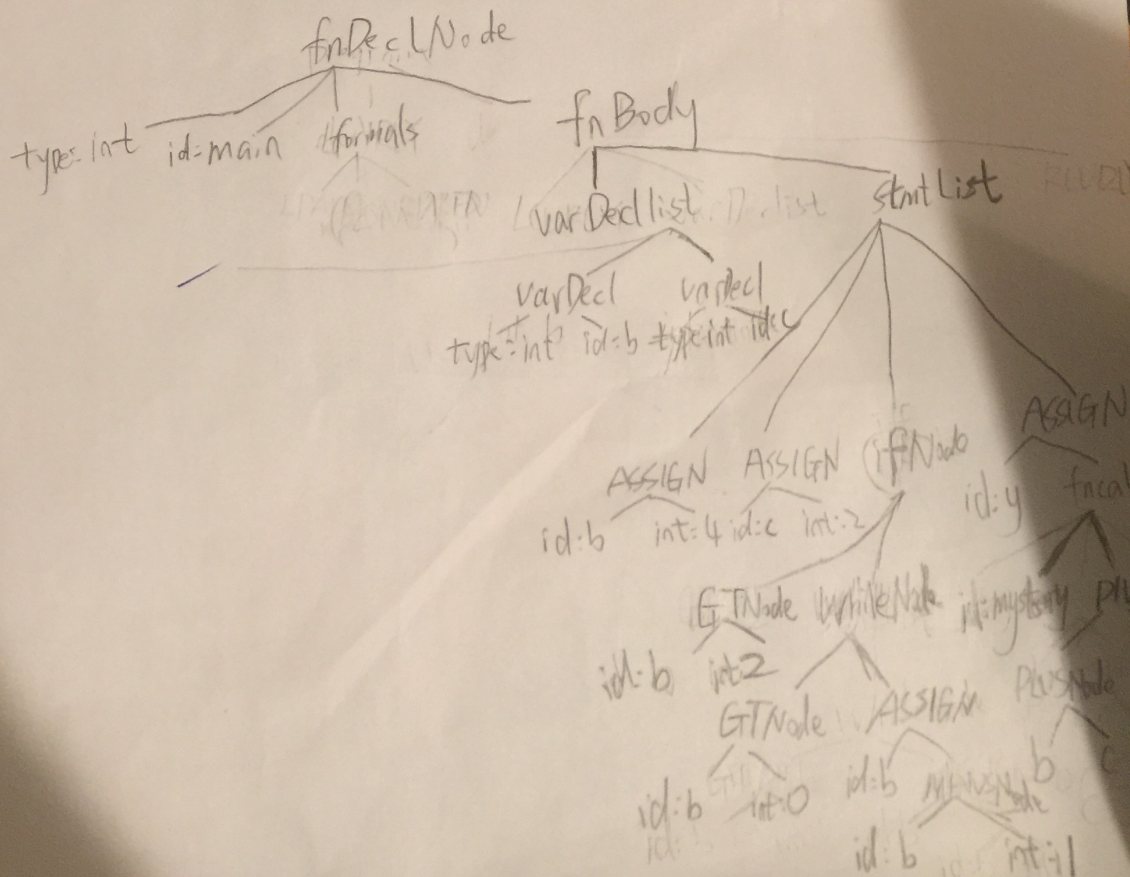 fnDeclNode
type=int id=main formals fnBody
varDecllist stmtList
varDecl varDecl
type=int id=b type=int id=c
ASSIGN
ASSIGN ASSIGN ifNode
id:y fncal
id:b int=4 id:c int:2
GTNode WhileNode id:mystery
id:b int:2
PLUSNode
GTNode ASSIGN
b c
id:b int:0 id:b MINUSNode
id:b int:1